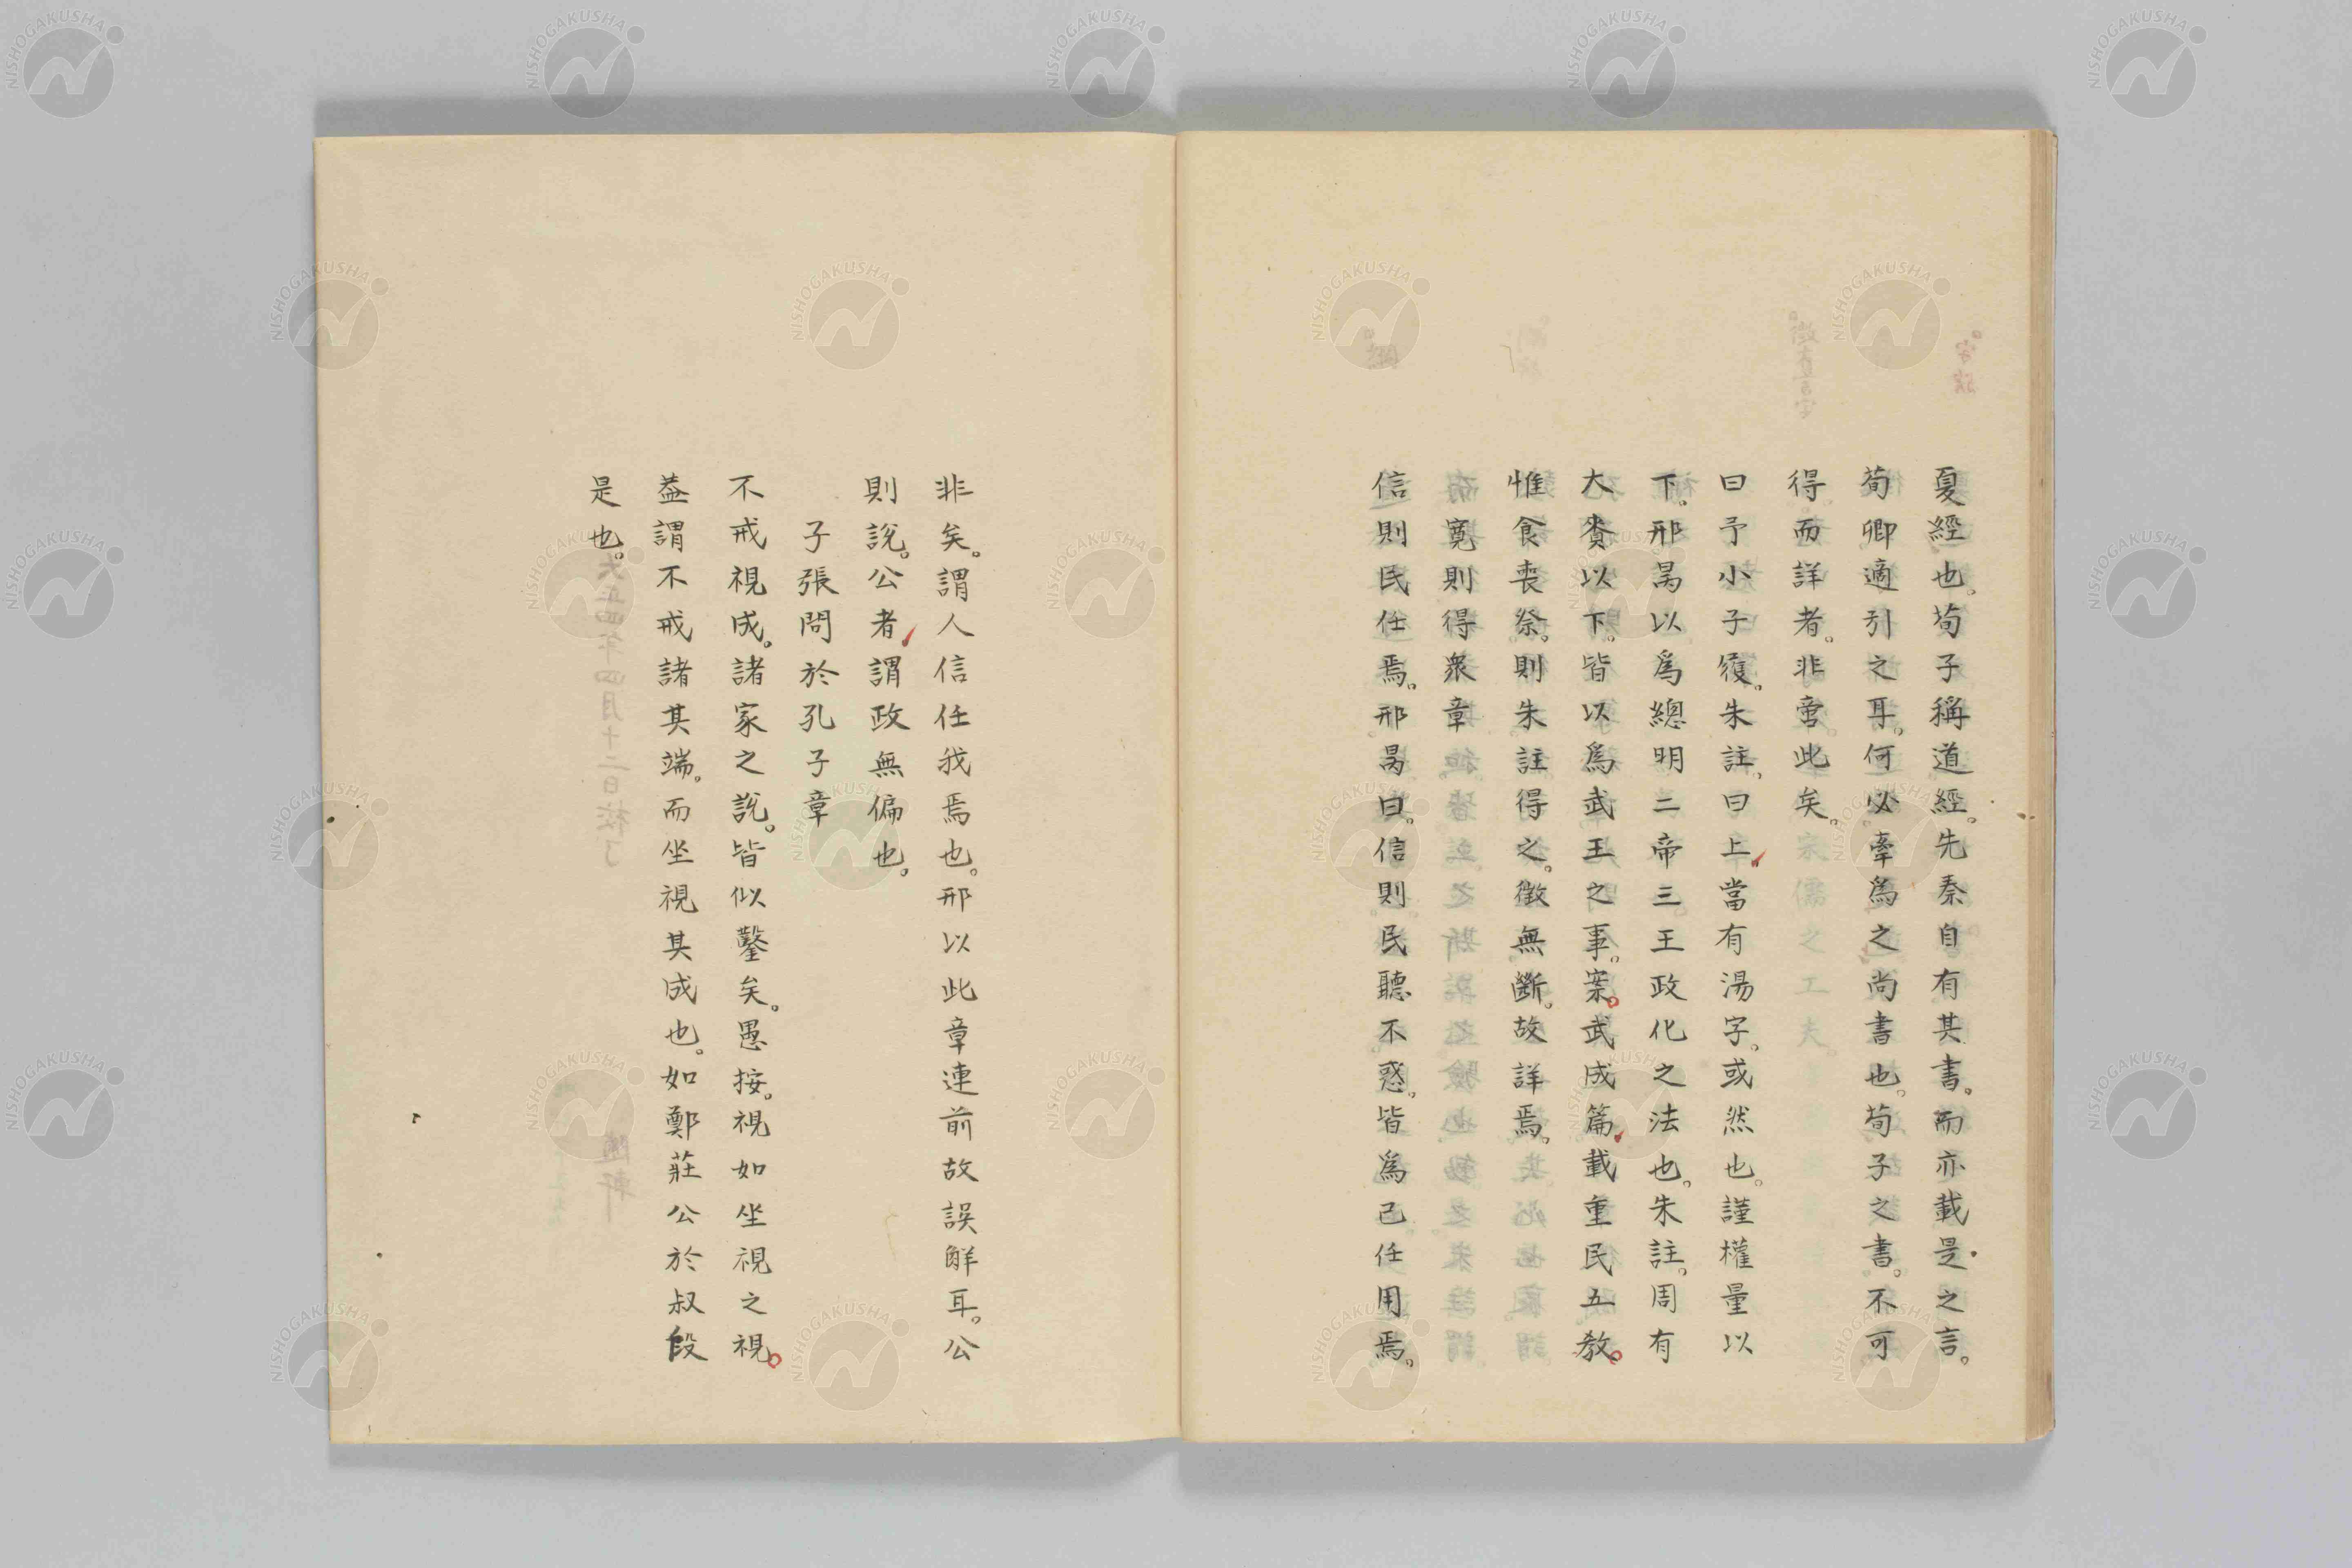 夏經也。荀子稱道經。先秦自有其書。而亦載是之言。
荀卿適引之耳。何必牽為之尚書也。荀子之書。不可
得而詳者。非啻此矣。
曰予小子復。朱註。曰上當有湯字。或然也。謹權量以
下。邢昺以爲總明二帝三王政化之法也。朱註。周有
大賚以下。皆以爲武王之事。案。武成篇載重民五教。
惟食喪祭。則朱註得之。徵無斷。故詳焉。
寬則得衆章
信則民任焉。邢昺曰。信則民聽不惑。皆爲己任用焉。
非矣。謂人信任我焉也。邢以此章連前故誤解耳。公
則說。公者謂政無偏也。
子張問於孔子章
不戒視成。諸家之說。皆似鑿矣。愚按。視如坐視之視。
蓋謂不戒諸其端。而坐視其成也。如鄭莊公於叔段
是也。
NISHOGAKUSHA